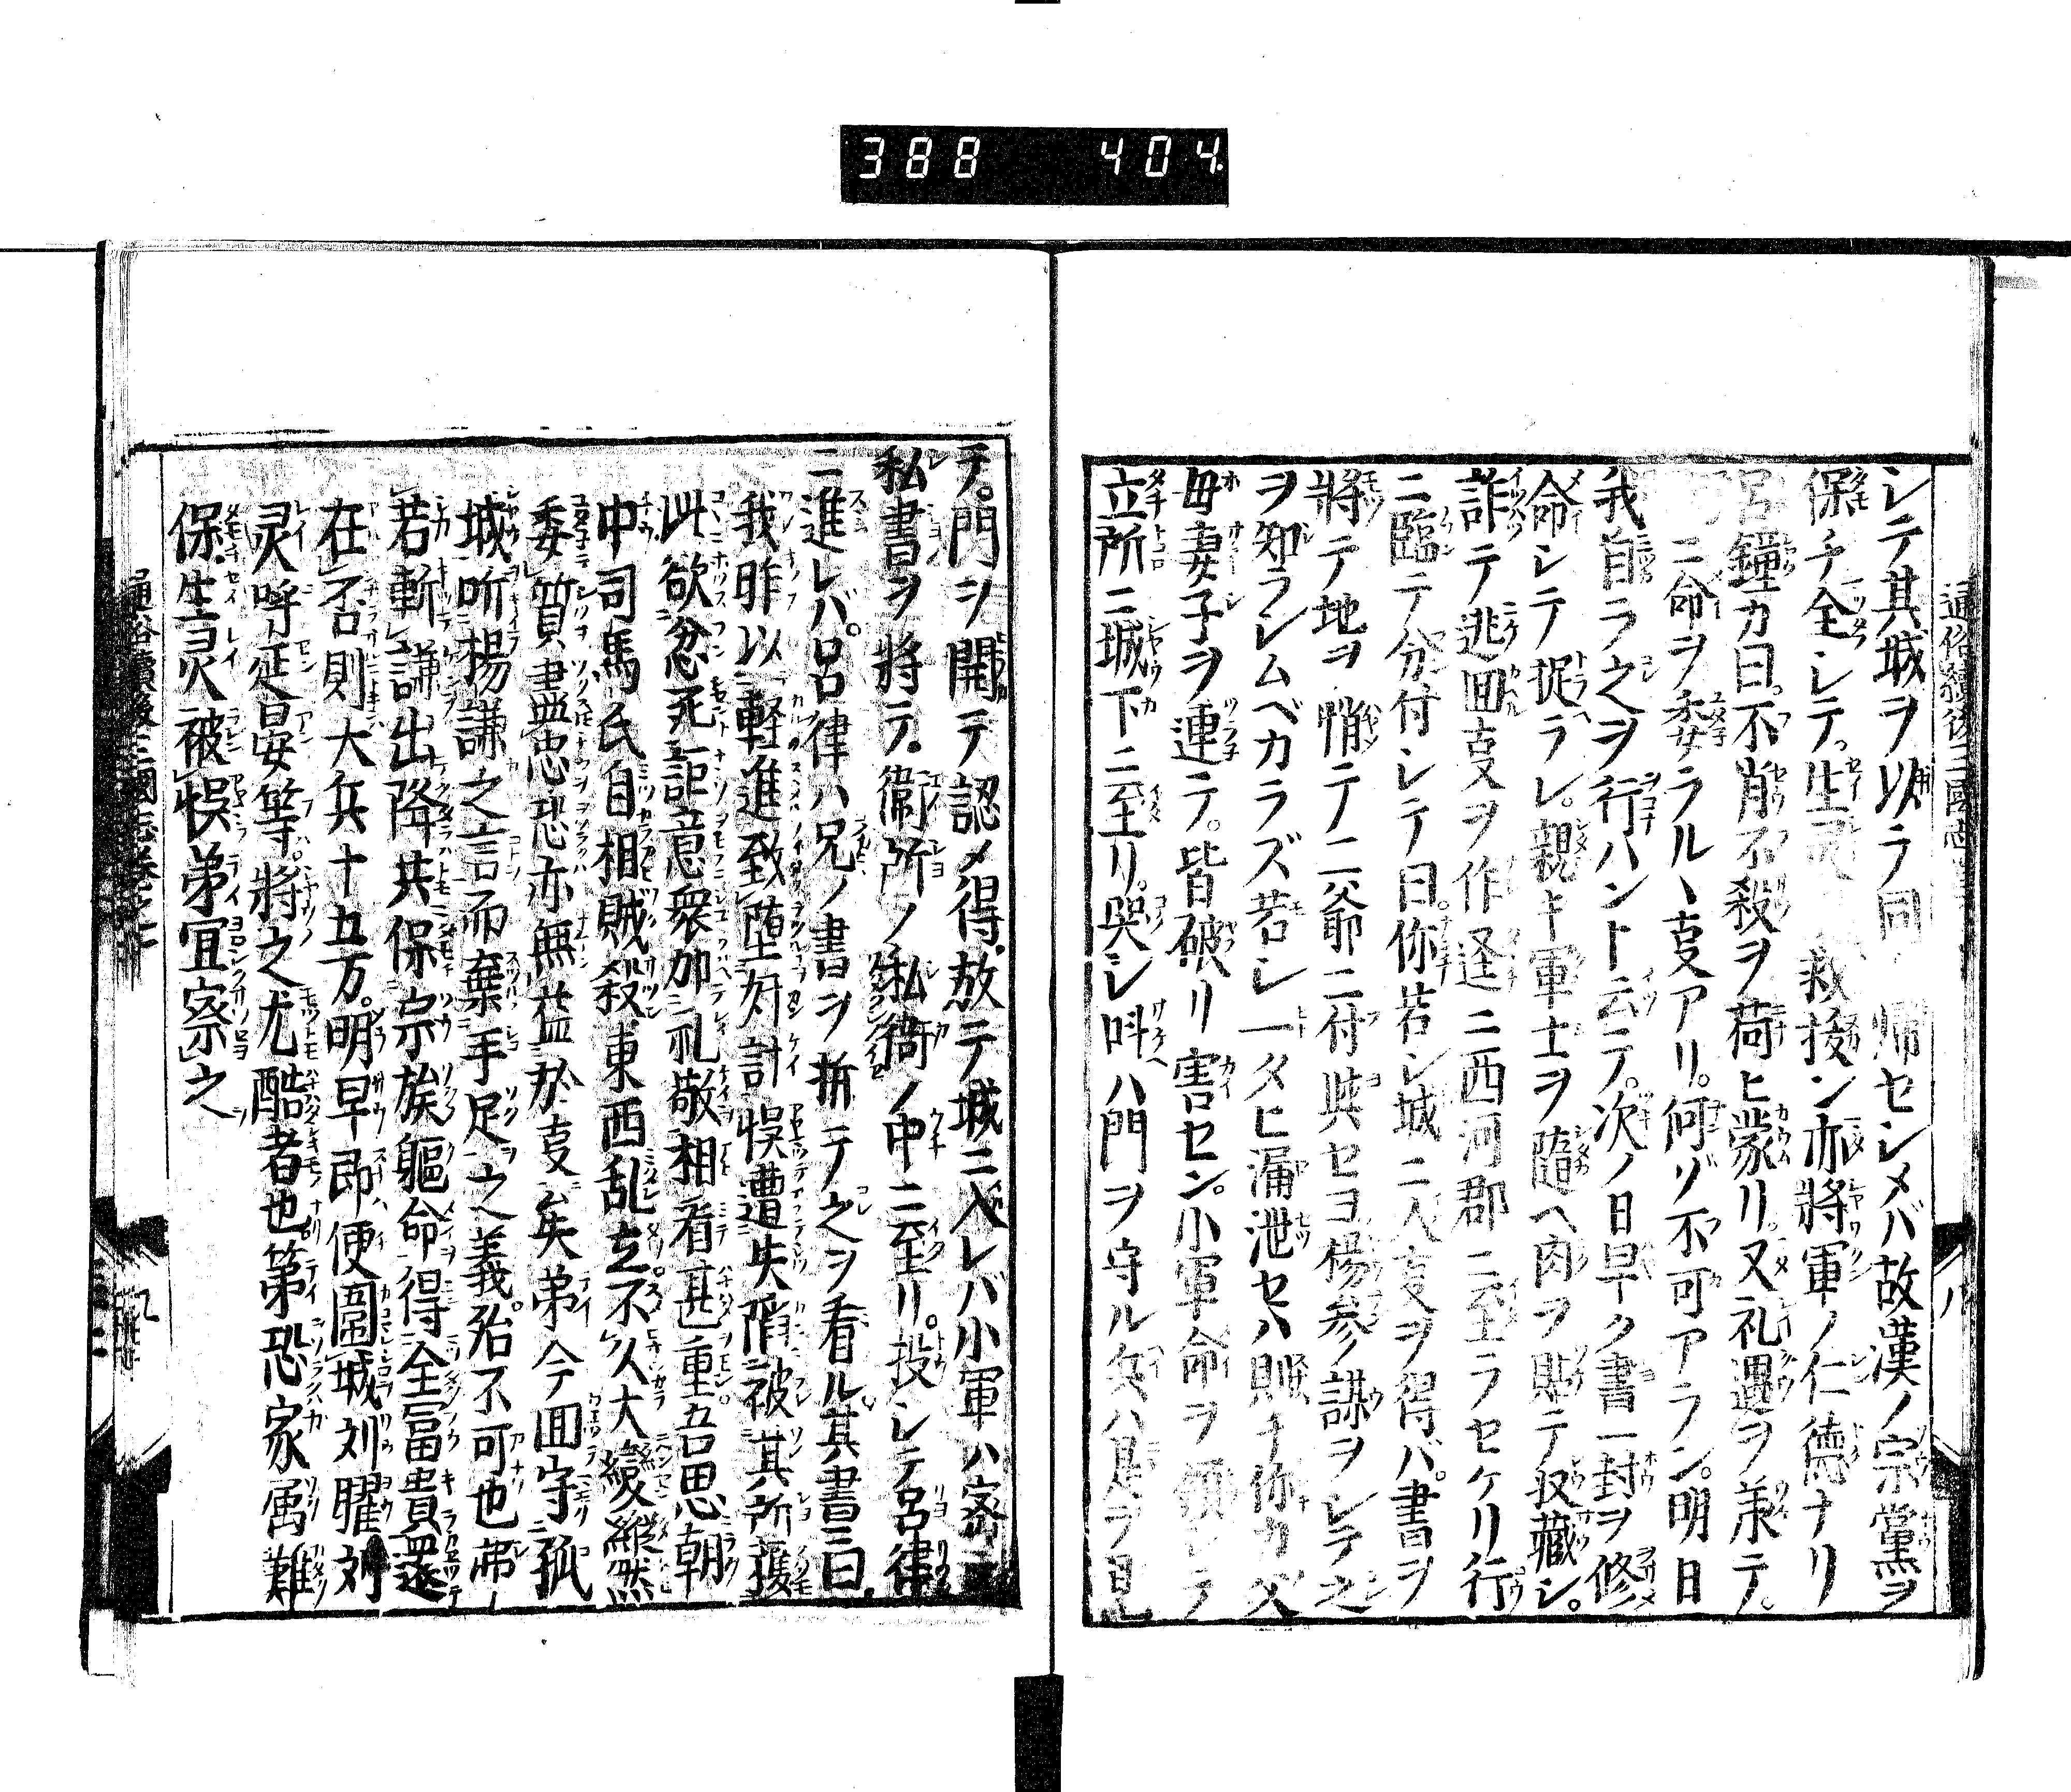 388 404
通俗續後三國志
シテ其城ヲ以ラ同 帰セシメバ故漢ノ宗黨ヲ
保チ全シテ。生 救授ン亦將軍ノ仁徳ナリ
呂鐘カ曰。不肖不殺ヲ荷ヒ蒙リ。又礼遇ヲ羕テ。
ニ命ヲ委ラルヽ叓アリ。何ゾ不可アラン。明日
我自ラ之ヲ行ハント云テ。次ノ日早ク書一封ヲ修
命シテ捉ラレ。親キ軍士ヲ隨ヘ肉ヲ貼テ収藏シ。
詐テ逃回叓ヲ作逕ニ西河郡ニ至ラセケリ行
ニ臨テ分付シテ曰。你若シ城ニ入叓ヲ得バ。書ヲ
將テ地ヲ悄テ二爺ニ付與セヨ楊參謀ヲシテ之
ヲ知ラシムベカラズ若シ一タヒ漏泄セハ則チ你カ父
毋妻子ヲ連テ。皆破リ害セン。小軍命ヲ領シテ
立所ニ城下ニ至リ。哭シ呌ハ門ヲ守ル矣ハ是ヲ見
八
テ。門ヲ開テ認メ得。放テ城ニ入レバ小軍ハ密ニ
私書ヲ將テ。衛所ノ私衙ノ中ニ至リ。投シテ呂律
ニ進レバ。呂律ハ兄ノ書ヲ拆テ之ヲ看ル。其書ニ曰。
我昨以軽進致堕奸計悞遭失隋被其所獲
此欲忿死詎意衆加礼敬相看甚重吾思朝
中司馬氏自相賊殺東西乱立不久大變縱然
委質盡忠恐亦無益於叓矣弟今囬守孤
城听楊謙之言而棄手足之義殆不可也弟
若斬謙出降共保宗族軀命得全冨貴還
在否則大兵十五万。明早即便圍城刘曜刘
灵呼延晏等。將之尤酷者也第恐家属難
保。生灵被悞弟宜察之
通俗續後三國志卷之
九